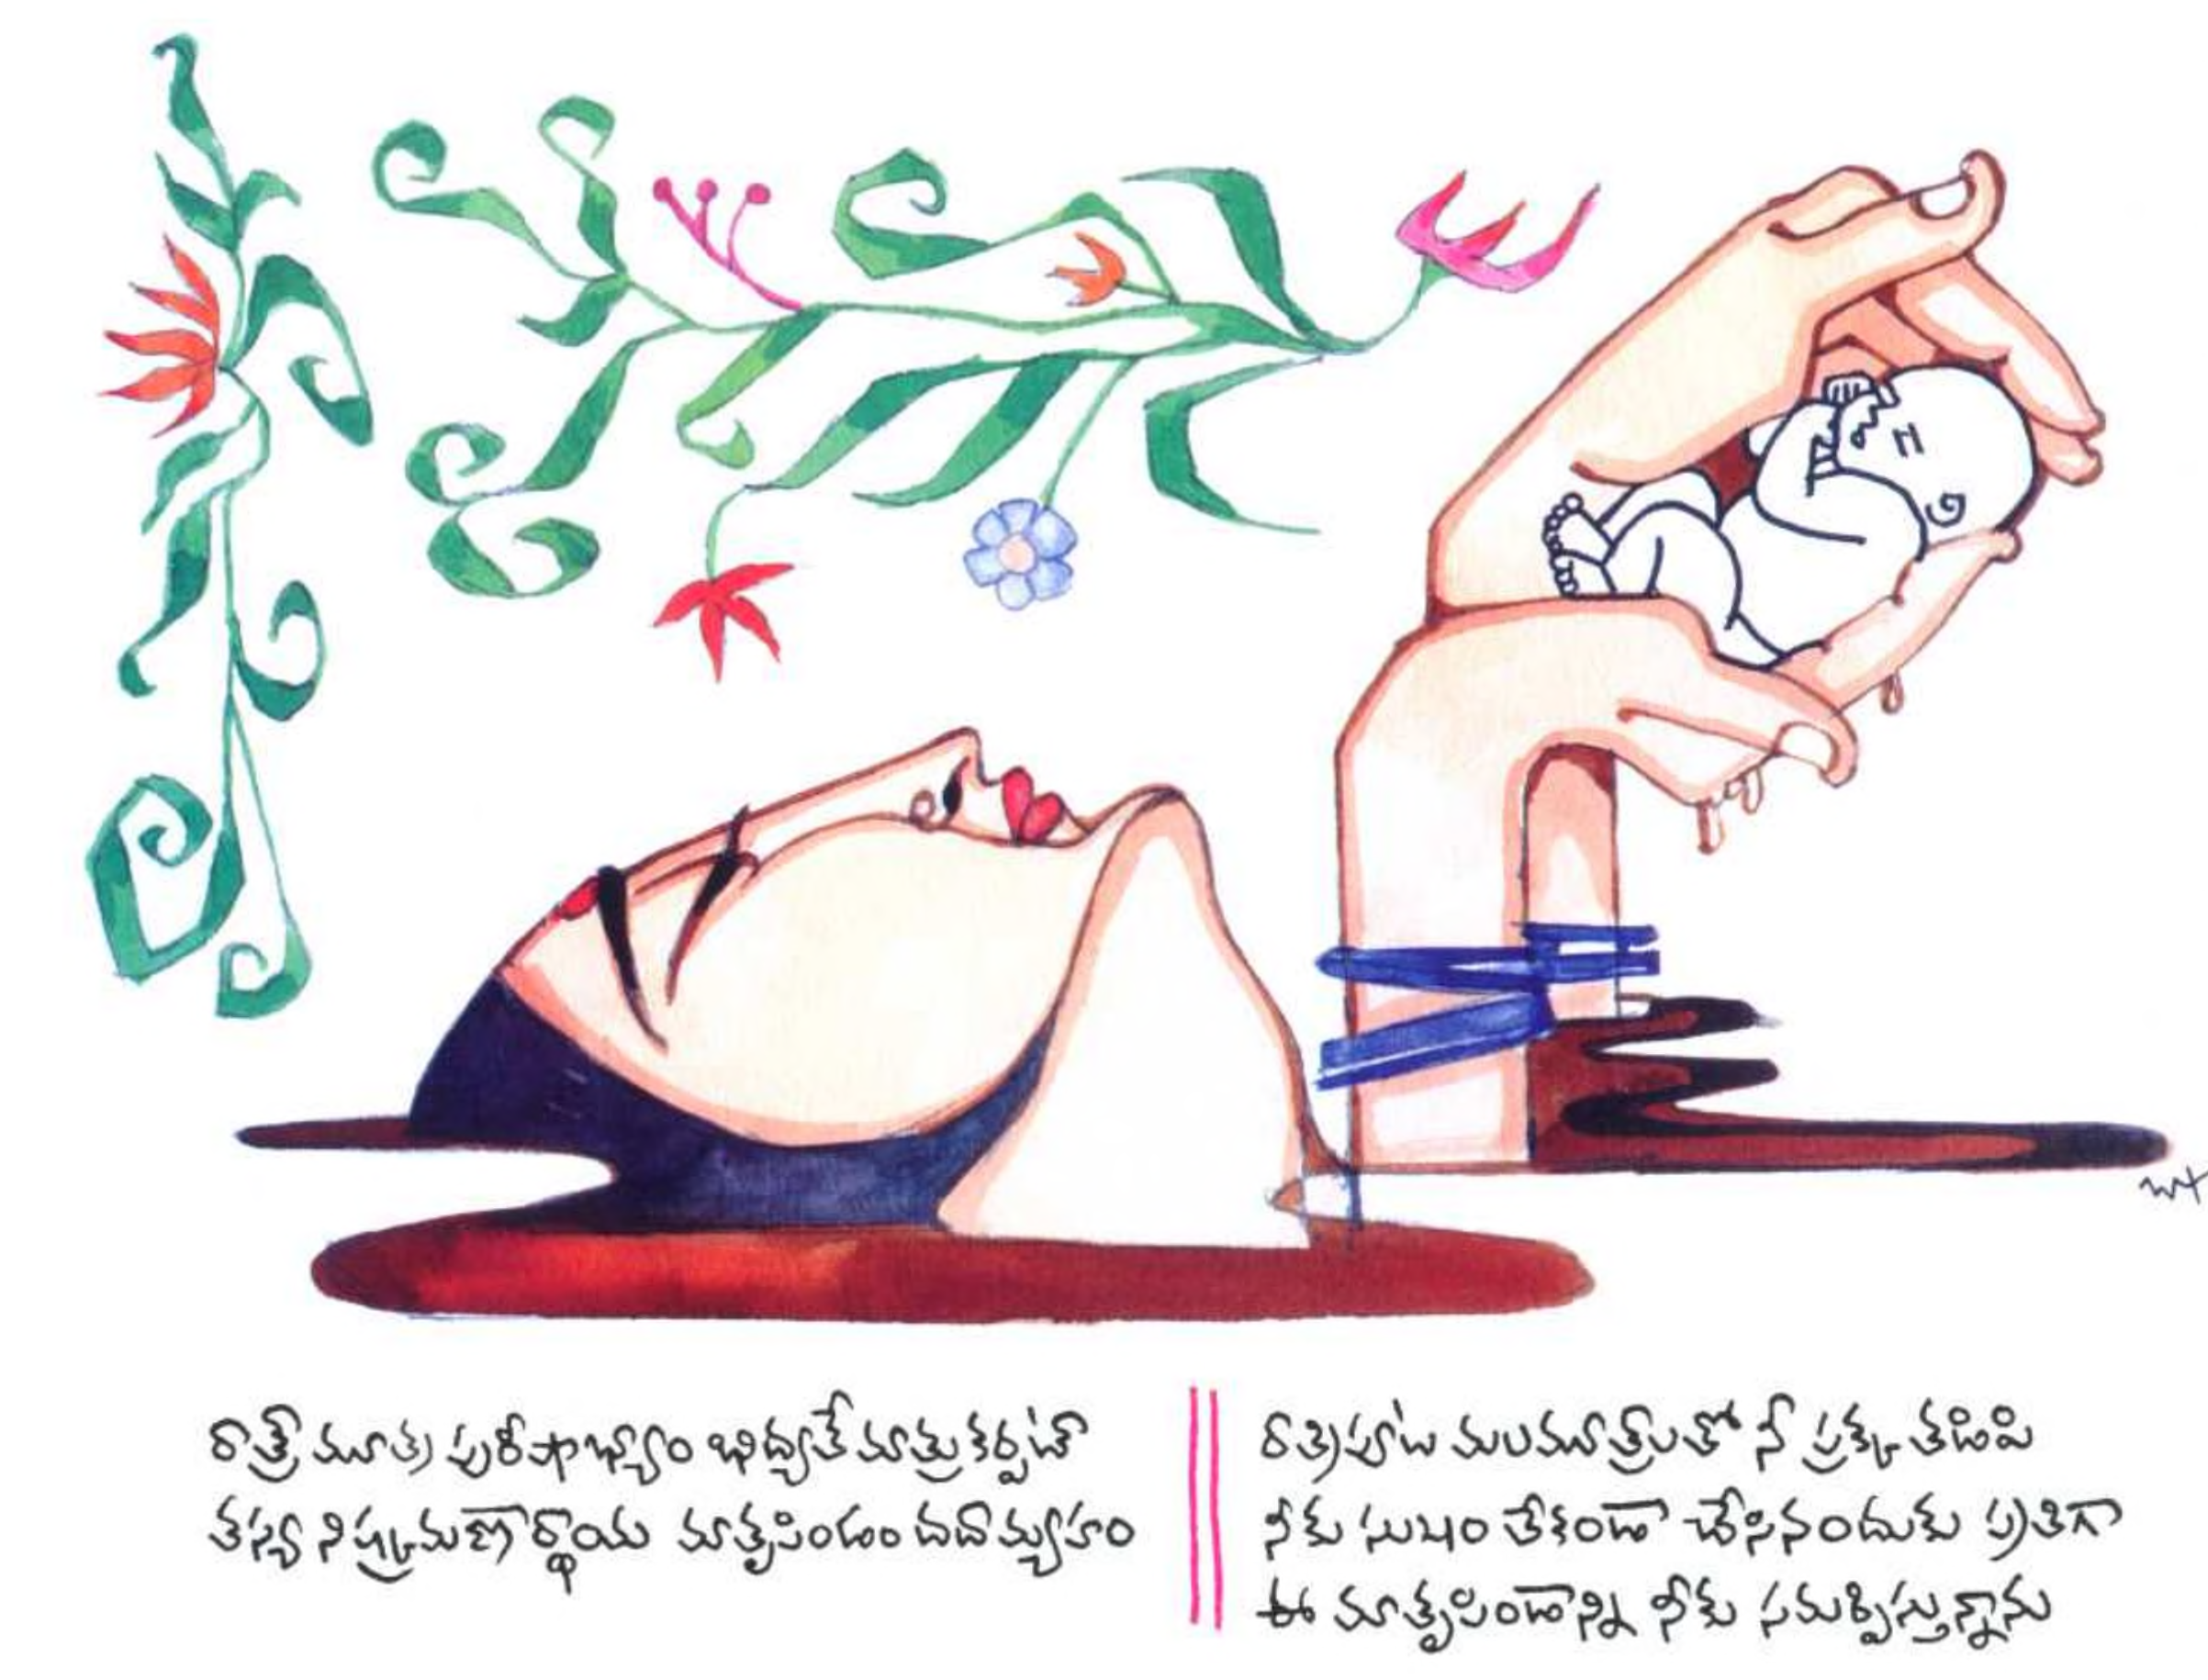 రాత్రౌ మూత్ర పురీషాభ్యాం భిద్యతే మాతృకర్పటా
తస్య నిష్క్రమణార్థాయ మాతృపిండం దదామ్యహం
రాత్రిపూట మలమూత్రాలతో నీ ప్రక్క తడిపి
నీకు సుఖం లేకుండా చేసినందుకు ప్రతిగా
ఈ మాతృపిండాన్ని నీకు సమర్పిస్తున్నాను